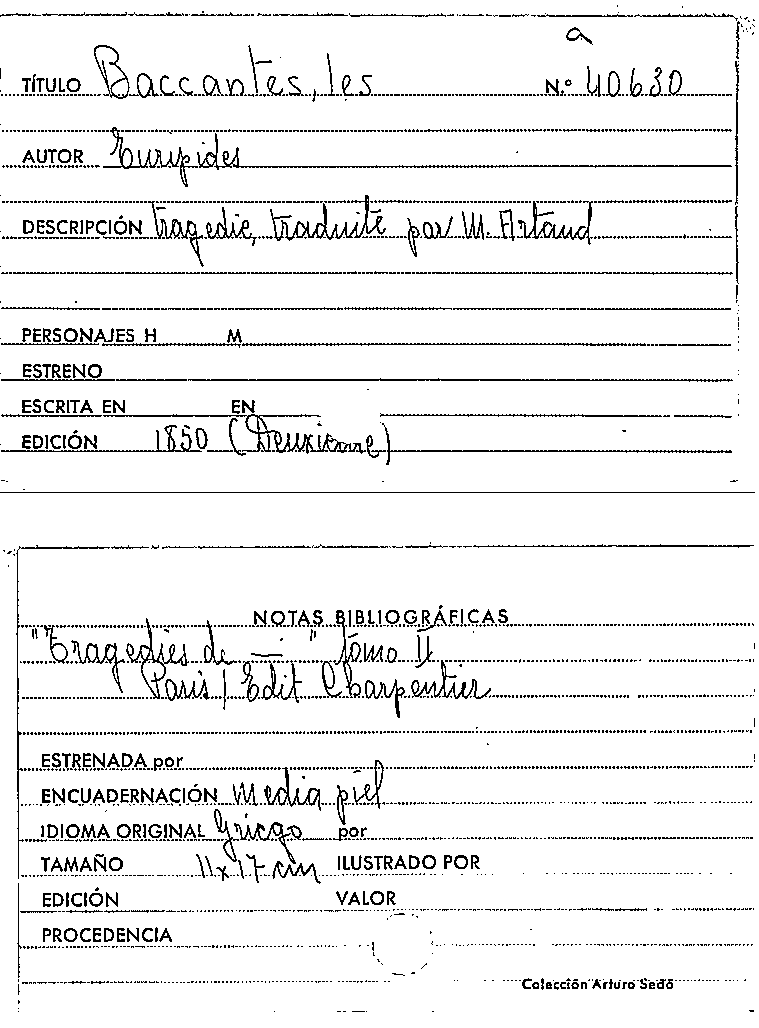 a
TÍTULO Baccantes, les N.º 40630
AUTOR Eurípides
DESCRIPCIÓN tragedie, traduite par M. Artaud
PERSONAJES H M
ESTRENO
ESCRITA EN EN
EDICIÓN 1850 (Deuxieme)
NOTAS BIBLIOGRÁFICAS
"Tragedies de — " tomo II
Paris / Edit Charpentier
ESTRENADA por
ENCUADERNACIÓN Media piel
IDIOMA ORIGINAL Griego por
TAMAÑO 11x17 cm ILUSTRADO POR
EDICIÓN VALOR
PROCEDENCIA
Colección Arturo Sedó